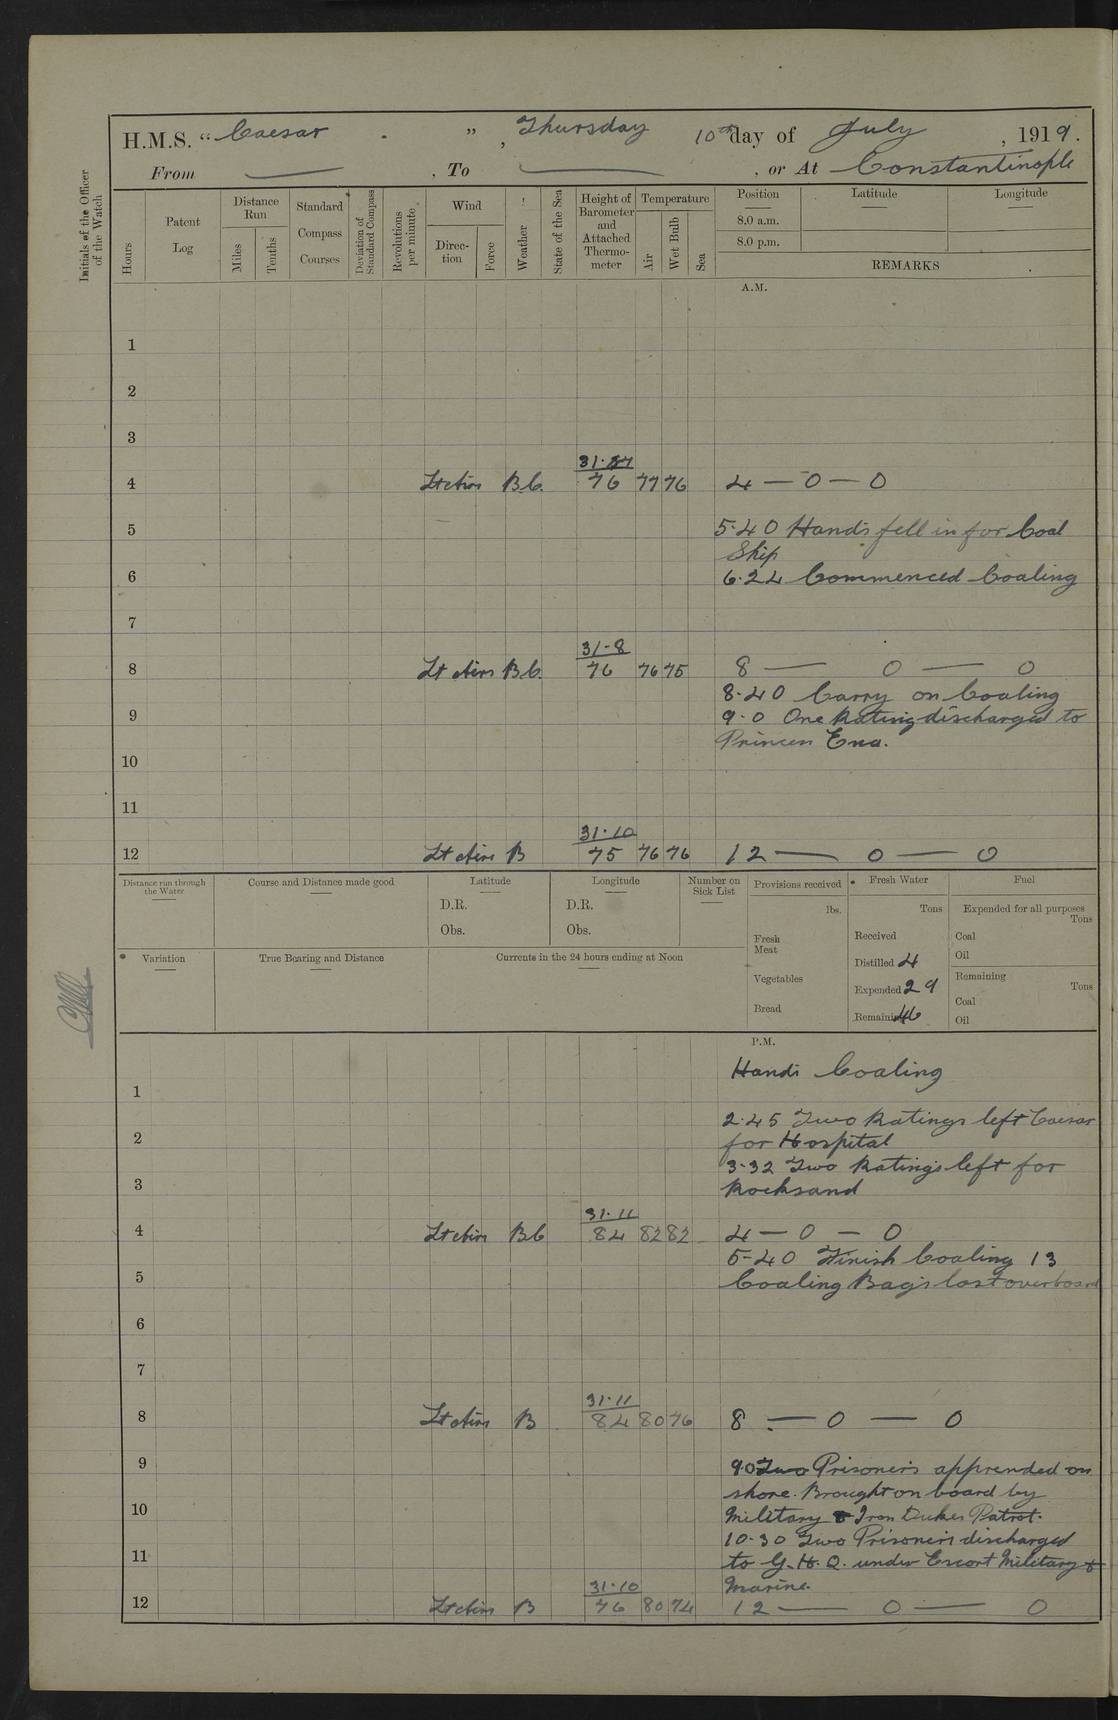 H.M.S. "Caesar", Thursday 10th day of July, 1919.
From — , To — , or At Constantinople
Initials of the Officer of the Watch
Hours
Patent Log
Distance Run
Miles
Tenths
Standard Compass Courses
Deviation of Standard Compass
Revolutions per minute
Wind
Direction
Force
Weather
State of the Sea
Height of Barometer and Attached Thermometer
Temperature
Air
Wet Bulb
Sea
Position Latitude Longitude
8.0 a.m.
8.0 p.m.
REMARKS
A.M.
1
2
3
31·27
4 Lt airs B.C. 76 77 76 4 — 0 — 0
5 5·40 Hands fell in for Coal
Ship
6 6·24 Commenced Coaling
7
31·8
8 Lt airs B.C. 76 76 75 8 — 0 — 0
8·40 Carry on Coaling
9 9·0 One Rating discharged to
Princess Ena.
10
11
31·10
12 Lt airs B 75 76 76 12 — 0 — 0
Distance run through the Water
Course and Distance made good
Latitude
D.R.
Obs.
Longitude
D.R.
Obs.
Number on Sick List
Provisions received
lbs.
Fresh Meat
Vegetables
Bread
Fresh Water
Tons
Received
Distilled 4
Expended 29
Remaining 46
Fuel
Expended for all purposes
Tons
Coal
Oil
Remaining
Tons
Coal
Oil
Variation
True Bearing and Distance
Currents in the 24 hours ending at Noon
P.M.
Hands Coaling
1
2·45 Two Ratings left Caesar
2 for Hospital
3·32 Two Ratings left for
3 Rocksand
31·11
4 Lt airs B.C 84 82 82 4 — 0 — 0
5-40 Finish Coaling 13
5 Coaling Bags lost overboard
6
7
31·11
8 Lt airs B 84 80 76 8 — 0 — 0
9 9.0 Two Prisoners apprended on
shore. Brought on board by
10 Military & Iron Dukes Patrol.
10·30 Two Prisoners discharged
11 to G.H.Q. under Escort Military &
Marine.
31·10
12 Lt airs B 76 80 74 12 — 0 — 0